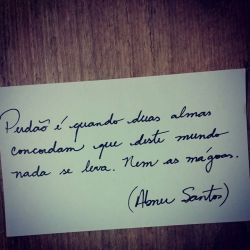 Perdão é quando duas almas
concordam que deste mundo
nada se leva. Nem as mágoas.
(Abner Santos)